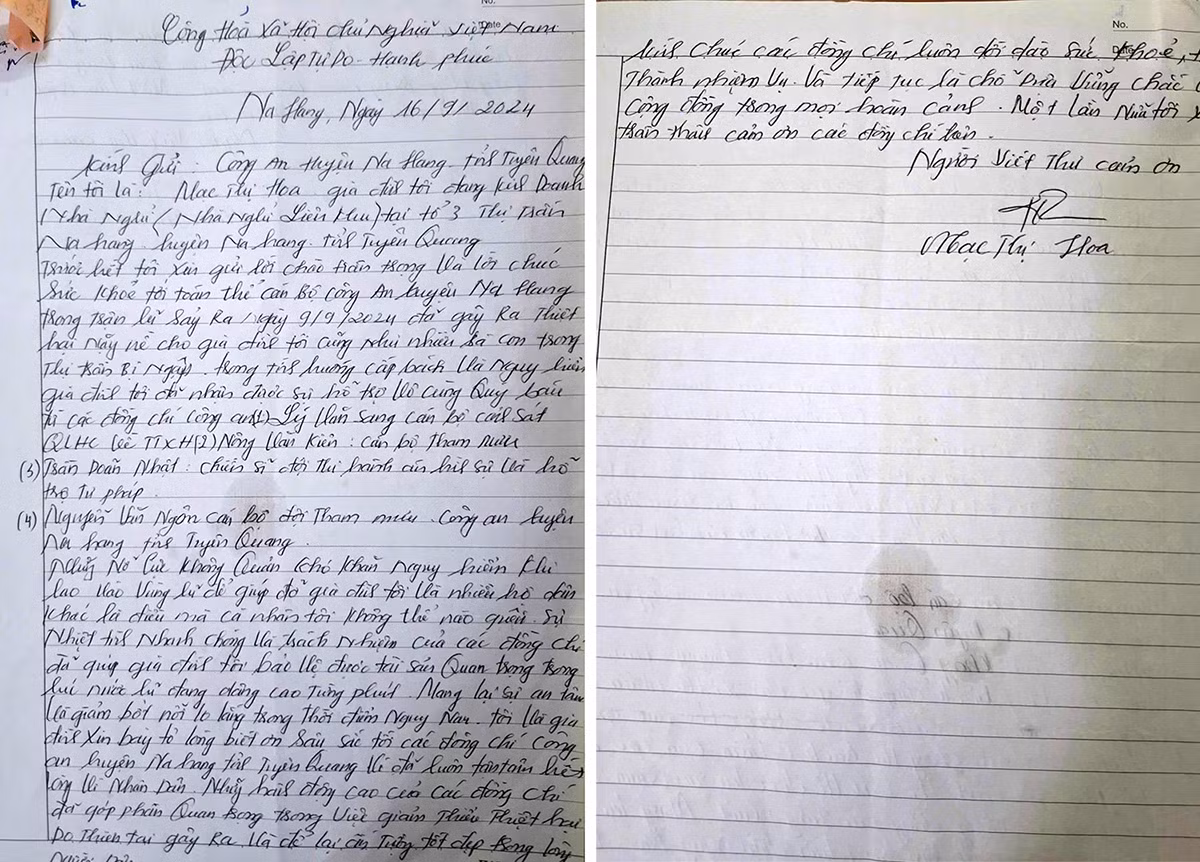 No.
Date
Cộng Hoà Xã Hội chủ Nghĩa Việt Nam
Độc Lập Tự Do - Hạnh phúc
Na Hang, Ngày 16/9/2024
Kính Gửi: Công An huyện Na Hang - tỉnh Tuyên Quang
Tên tôi là: Mạc Thị Hoa gia đình tôi đang kinh Doanh
Nhà Nghỉ (Nhà Nghỉ Liên Hưu) tại tổ 3 Thị trấn
Na hang. huyện Na hang. tỉnh Tuyên Quang
trước hết tôi xin gửi lời chào trân trọng và lời chúc
sức khoẻ tới toàn thể cán Bộ Công An huyện Na Hang
trong trận lũ sảy Ra ngày 9/9/2024 đã gây Ra Thiệt
hại Nặng nề cho gia đình tôi cũng như nhiều bà con trong
Thị trấn Bị Ngập. trong tình huống cấp bách và nguy hiểm
gia đình tôi đã nhận được sự hỗ trợ vô cùng Quý báu
từ các đồng chí Công an (1) Lý Văn Sang cán bộ cảnh sát
QLHC về TTXH (2) Nông Văn Kiên: cán bộ Tham mưu
(3) Trần Doãn Nhật: chiến sĩ đội thi hành án hình sự và hỗ
trợ tư pháp.
(4) Nguyễn Văn Ngôn cán bộ đội Tham mưu. Công an huyện
Na hang tỉnh Tuyên Quang.
Những Nỗ lực không Quản chó khăn nguy hiểm khi
lao vào vùng lũ để giúp đỡ gia đình tôi và nhiều hộ dân
khác là điều mà cá nhân tôi không thể nào quên. sự
Nhiệt tình Nhanh chóng và trách nhiệm của các đồng chí
đã giúp gia đình tôi bảo vệ được tài sản Quan trọng trong
lúc nước lũ đang dâng cao từng phút. Mang lại sự an tâm
và giảm bớt nỗi lo lắng trong thời điểm Nguy Nan. tôi và gia
đình xin bày tỏ lòng biết ơn sâu sắc tới các đồng chí Công
an huyện Na hang tỉnh Tuyên Quang vì đã luôn tận tâm hết
lòng vì Nhân Dân. Những hành động cao của các đồng chí
đã góp phần Quan trọng trong việc giảm Thiểu Thiệt hại
Do Thiên tai gây Ra và để lại ấn tượng tốt đẹp trong lòng
Người Dân
No.
Date
kính chúc các đồng chí luôn dồi dào sức khoẻ,
Thành nhiệm vụ. Và tiếp tục là chỗ dựa vững chắc
Cộng đồng trong mọi hoàn cảnh. Một lần Nữa tôi
trân thành cảm ơn các đồng chí
Người Viết Thư cảm ơn
Mạc Thị Hoa